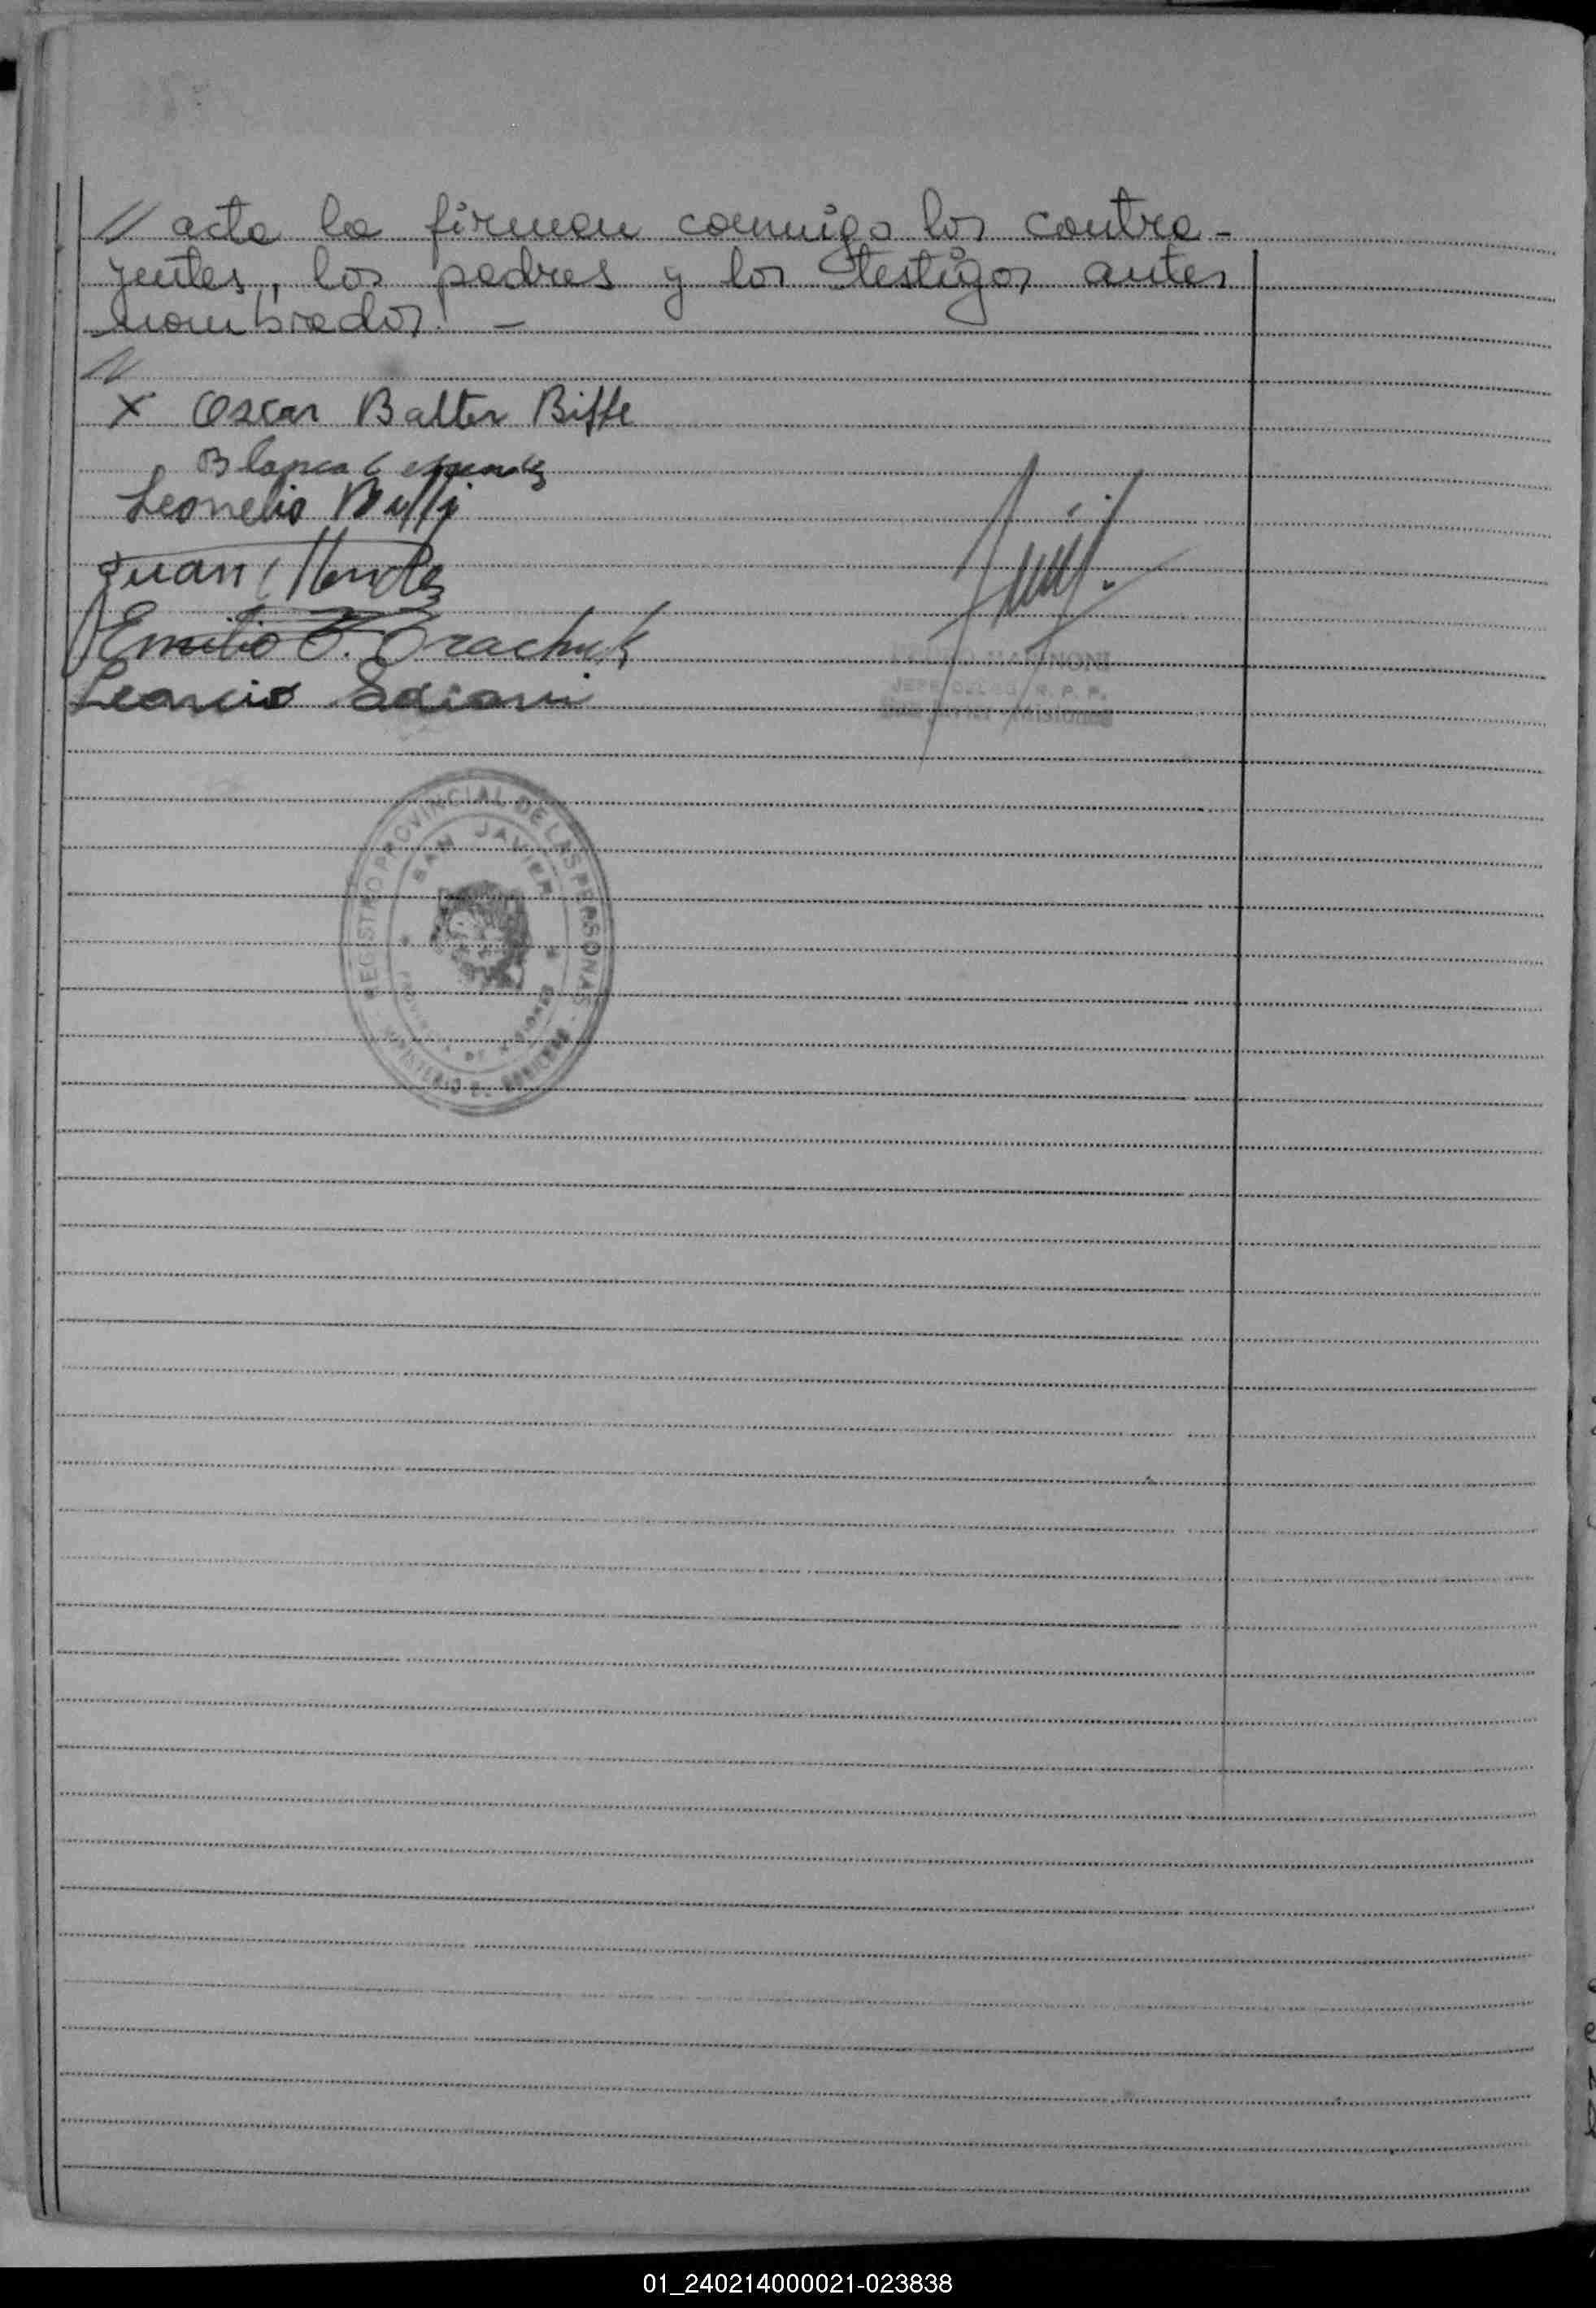 // acta la firman conmigo los contra-
yentes, los padres y los testigos antes
nombrados. —
//
X Oscar Balter Biffe
Blanca
Leonelio
Juan
Emilio F. Trachuk
Leoncio
MARINONI
JEFE DELEG. R. P. P.
San Javier Misiones
REGISTRO PROVINCIAL DE LAS PERSONAS
SAN JAVIER
PROVINCIA DE MISIONES
MINISTERIO DE GOBIERNO
01_240214000021-023838